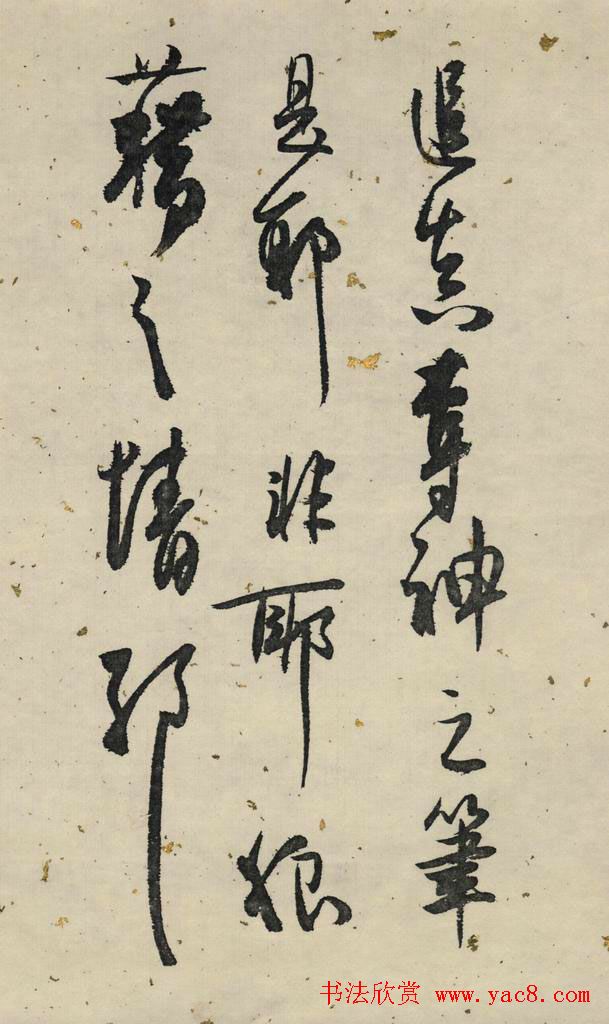 追真奪神之筆
是耶非耶狼
藉之情邪
书法欣赏 www.yac8.com